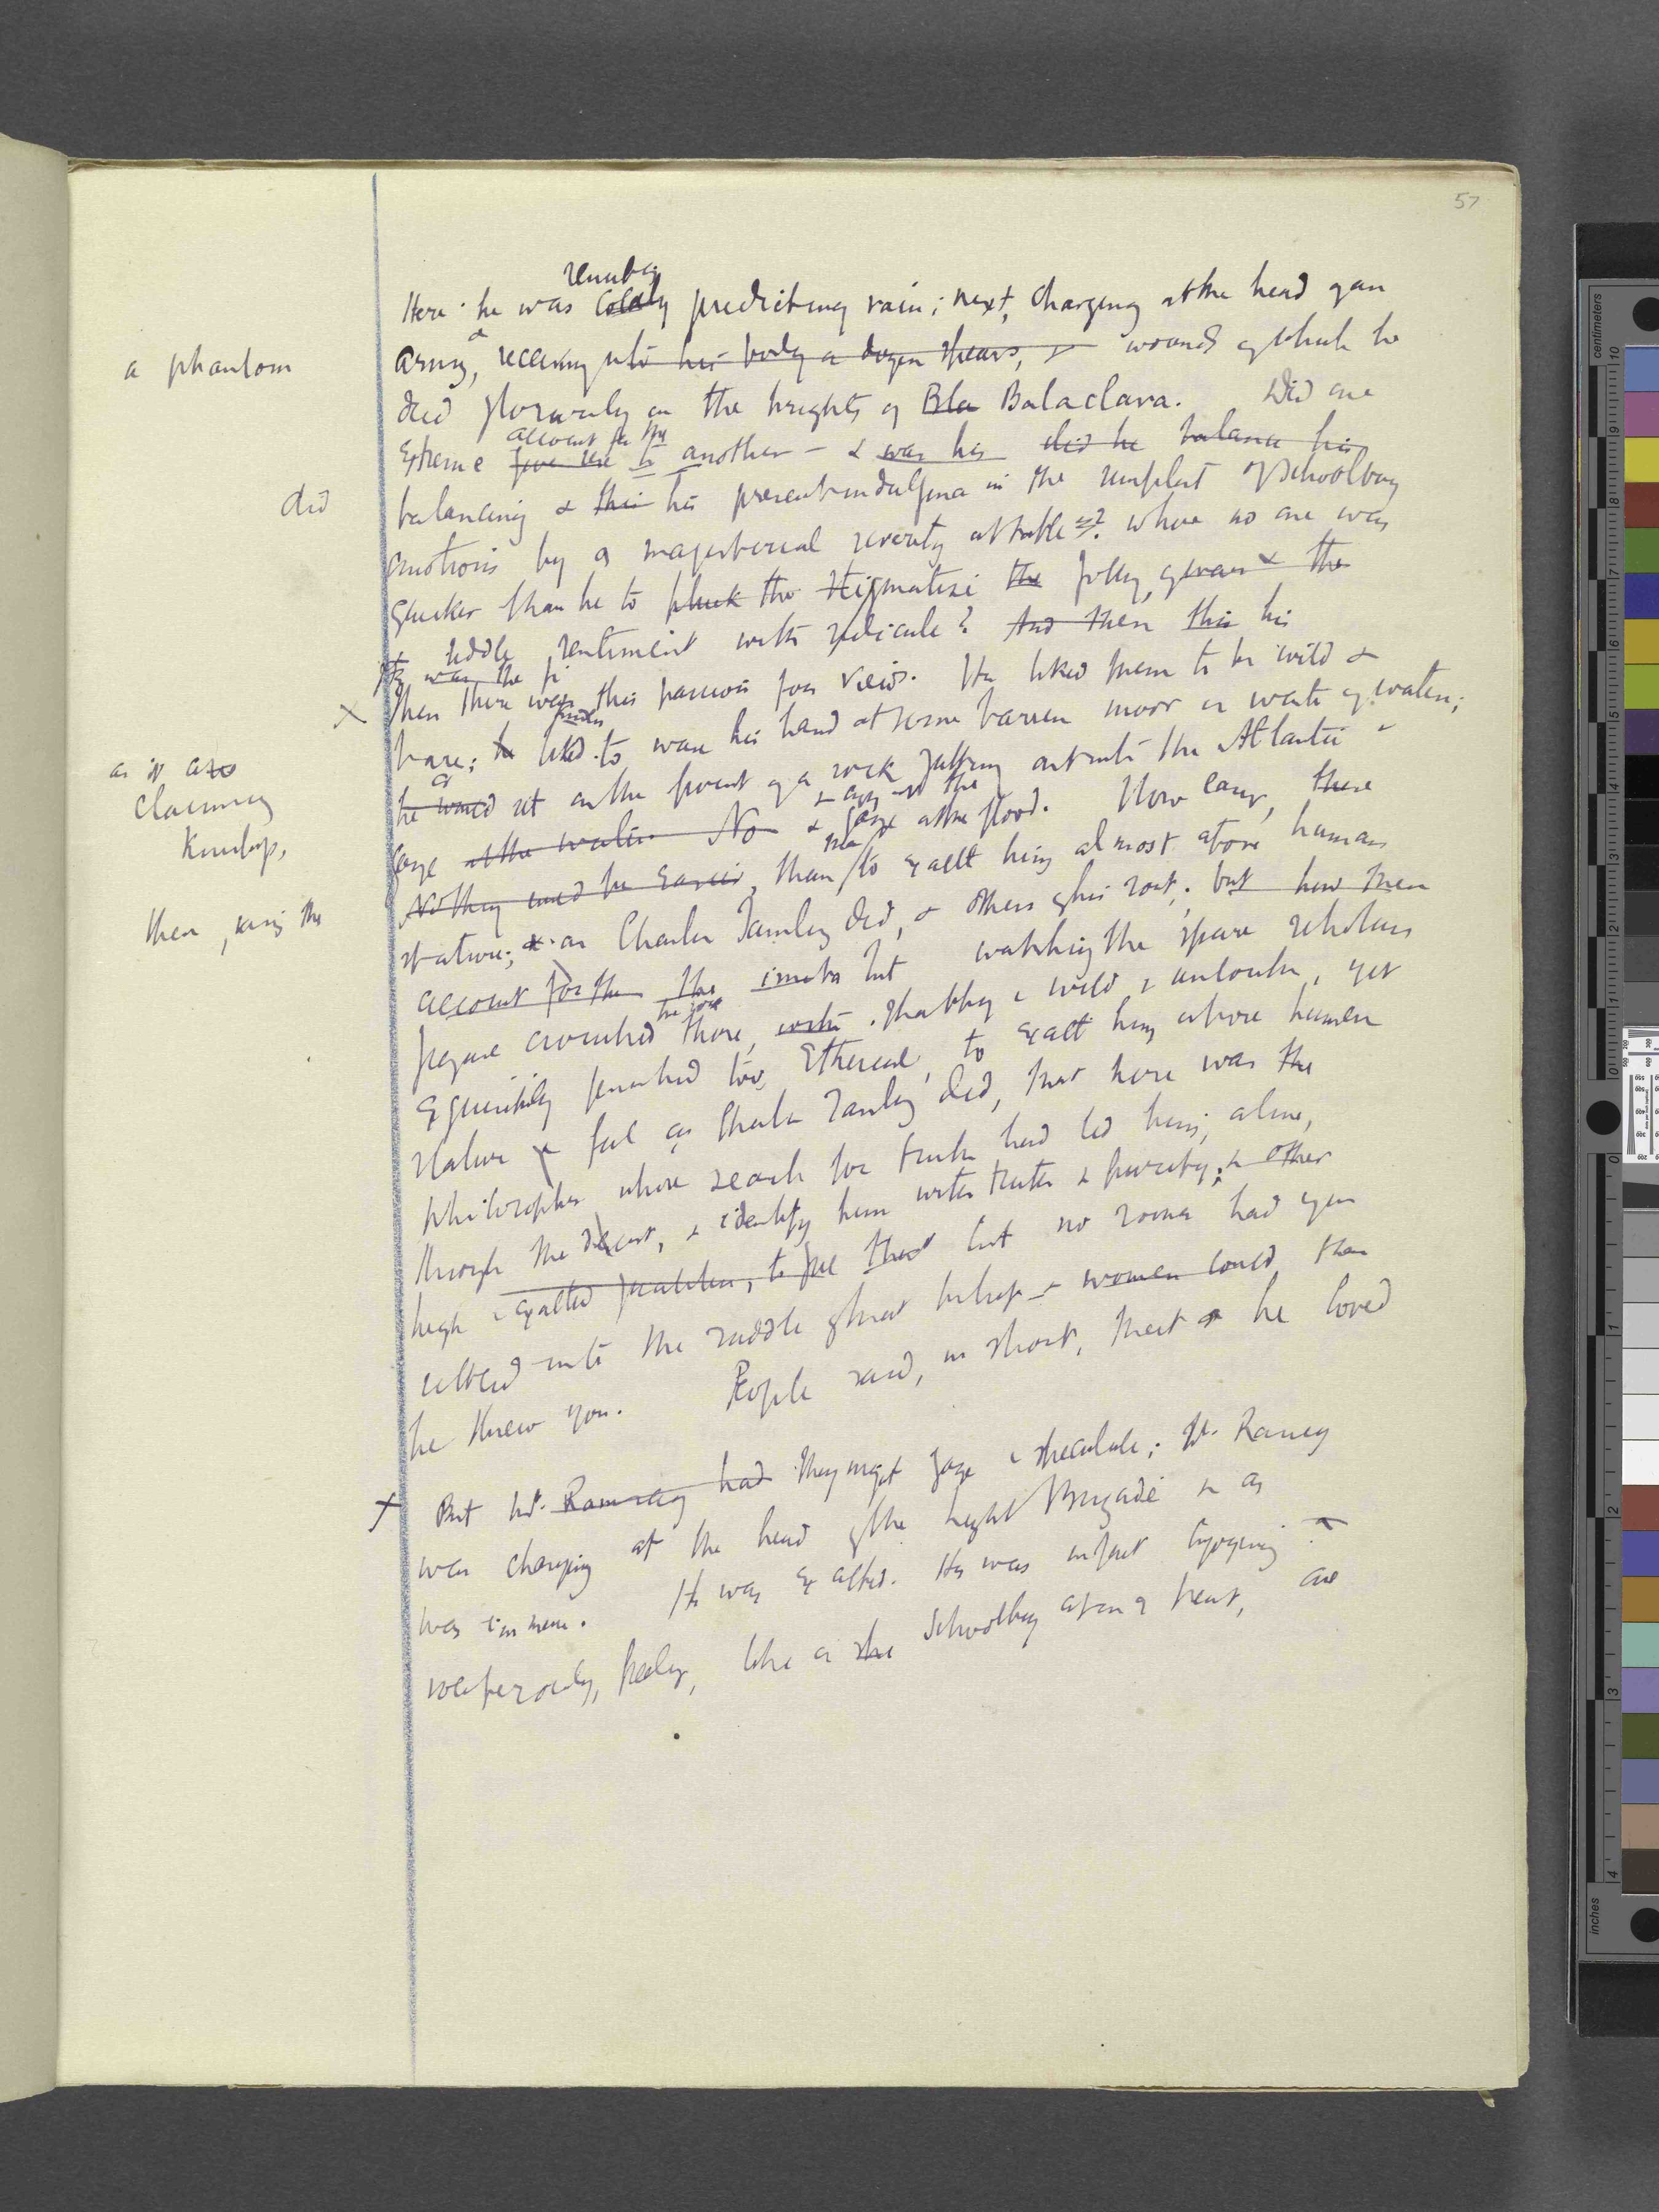 57
Here he was coldly predicting rain; next, charging at the head of an
a phantom
army, & receiving into his body a dozen spears, wounds of which he
died gloriously on the heights of Bla Balaclava. Did one
account for the
extreme give rise to another — & was his did he balance his
did
balancing & this his present indulgence in the simplest of schoolboy
emotions by a magisterial severity at table ? where no one was
quicker than he to pluck the stigmatise the folly, & the
riddle sentiment with ridicule? And then this his
It was the
X Then there was this passion for views. He liked them to be wild &
bare; he liked to wave his hand at some barren moor or waste of water;
as it
claiming
kinship,
he would sit on the point of a rock jutting out into the Atlantic
gaze at the water. No & gaze at the flood. How easy, these
then, seeing the
Nothing could be easier, than to exalt him almost above human
stature; as Charles Tansley did, & others of his sort; but how then
account for the the but watching the spare scholars
figure crouched there, with shabby & wild & uncouth, yet
exquisitely too, ethereal, to exalt him above human
stature & feel as Charles Tansley did, that here was the
philosopher whose search for truth had led him, alone,
through the desert, & identify him with truth & purity; & other
high & exalted qualities, to feel that but no sooner had you
settled into the saddle of that belief & women could than
he threw you. People said, in short, that he loved
X But Mr. Ramsay had They might gaze & speculate; Mr. Ramsay
was charging at the head of the Light Brigade
was immense. He was exalted. He was in fact enjoying
vociferously, freely, like a the schoolboy after a treat, one
centimeters
inches